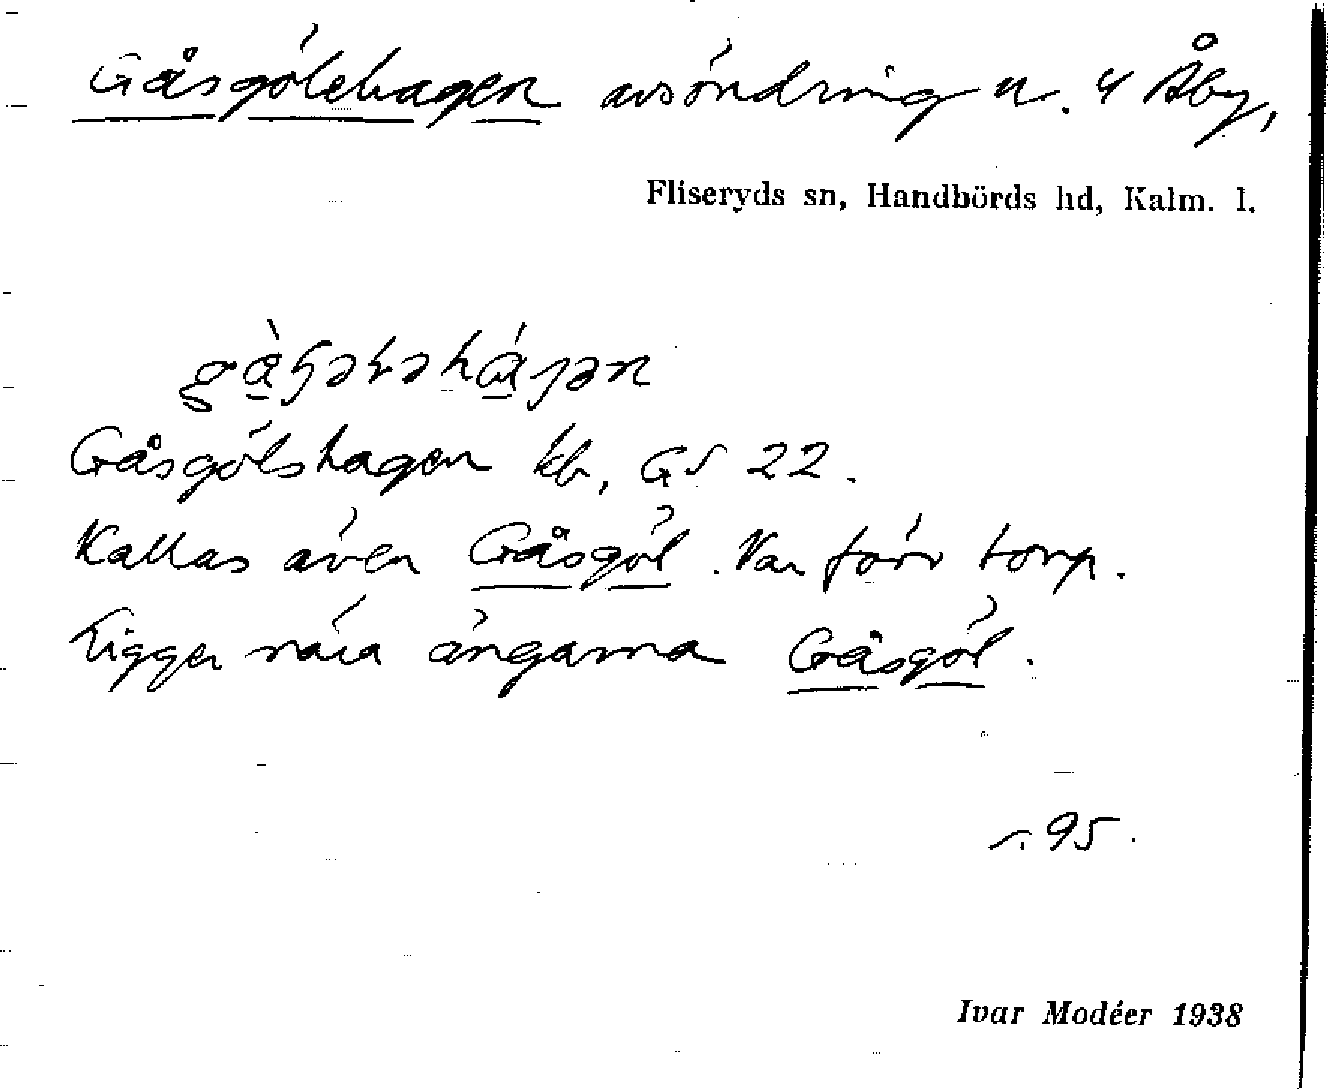 Gåsgölehagen avsöndring u. 4 Åby,
Fliseryds sn, Handbörds hd, Kalm. l.
Gåsgölshagen kb, GS 22.
Kallas även Gåsgöl. Var förr torp.
Ligger nära ängarna Gåsgöl.
95.
Ivar Modéer 1938